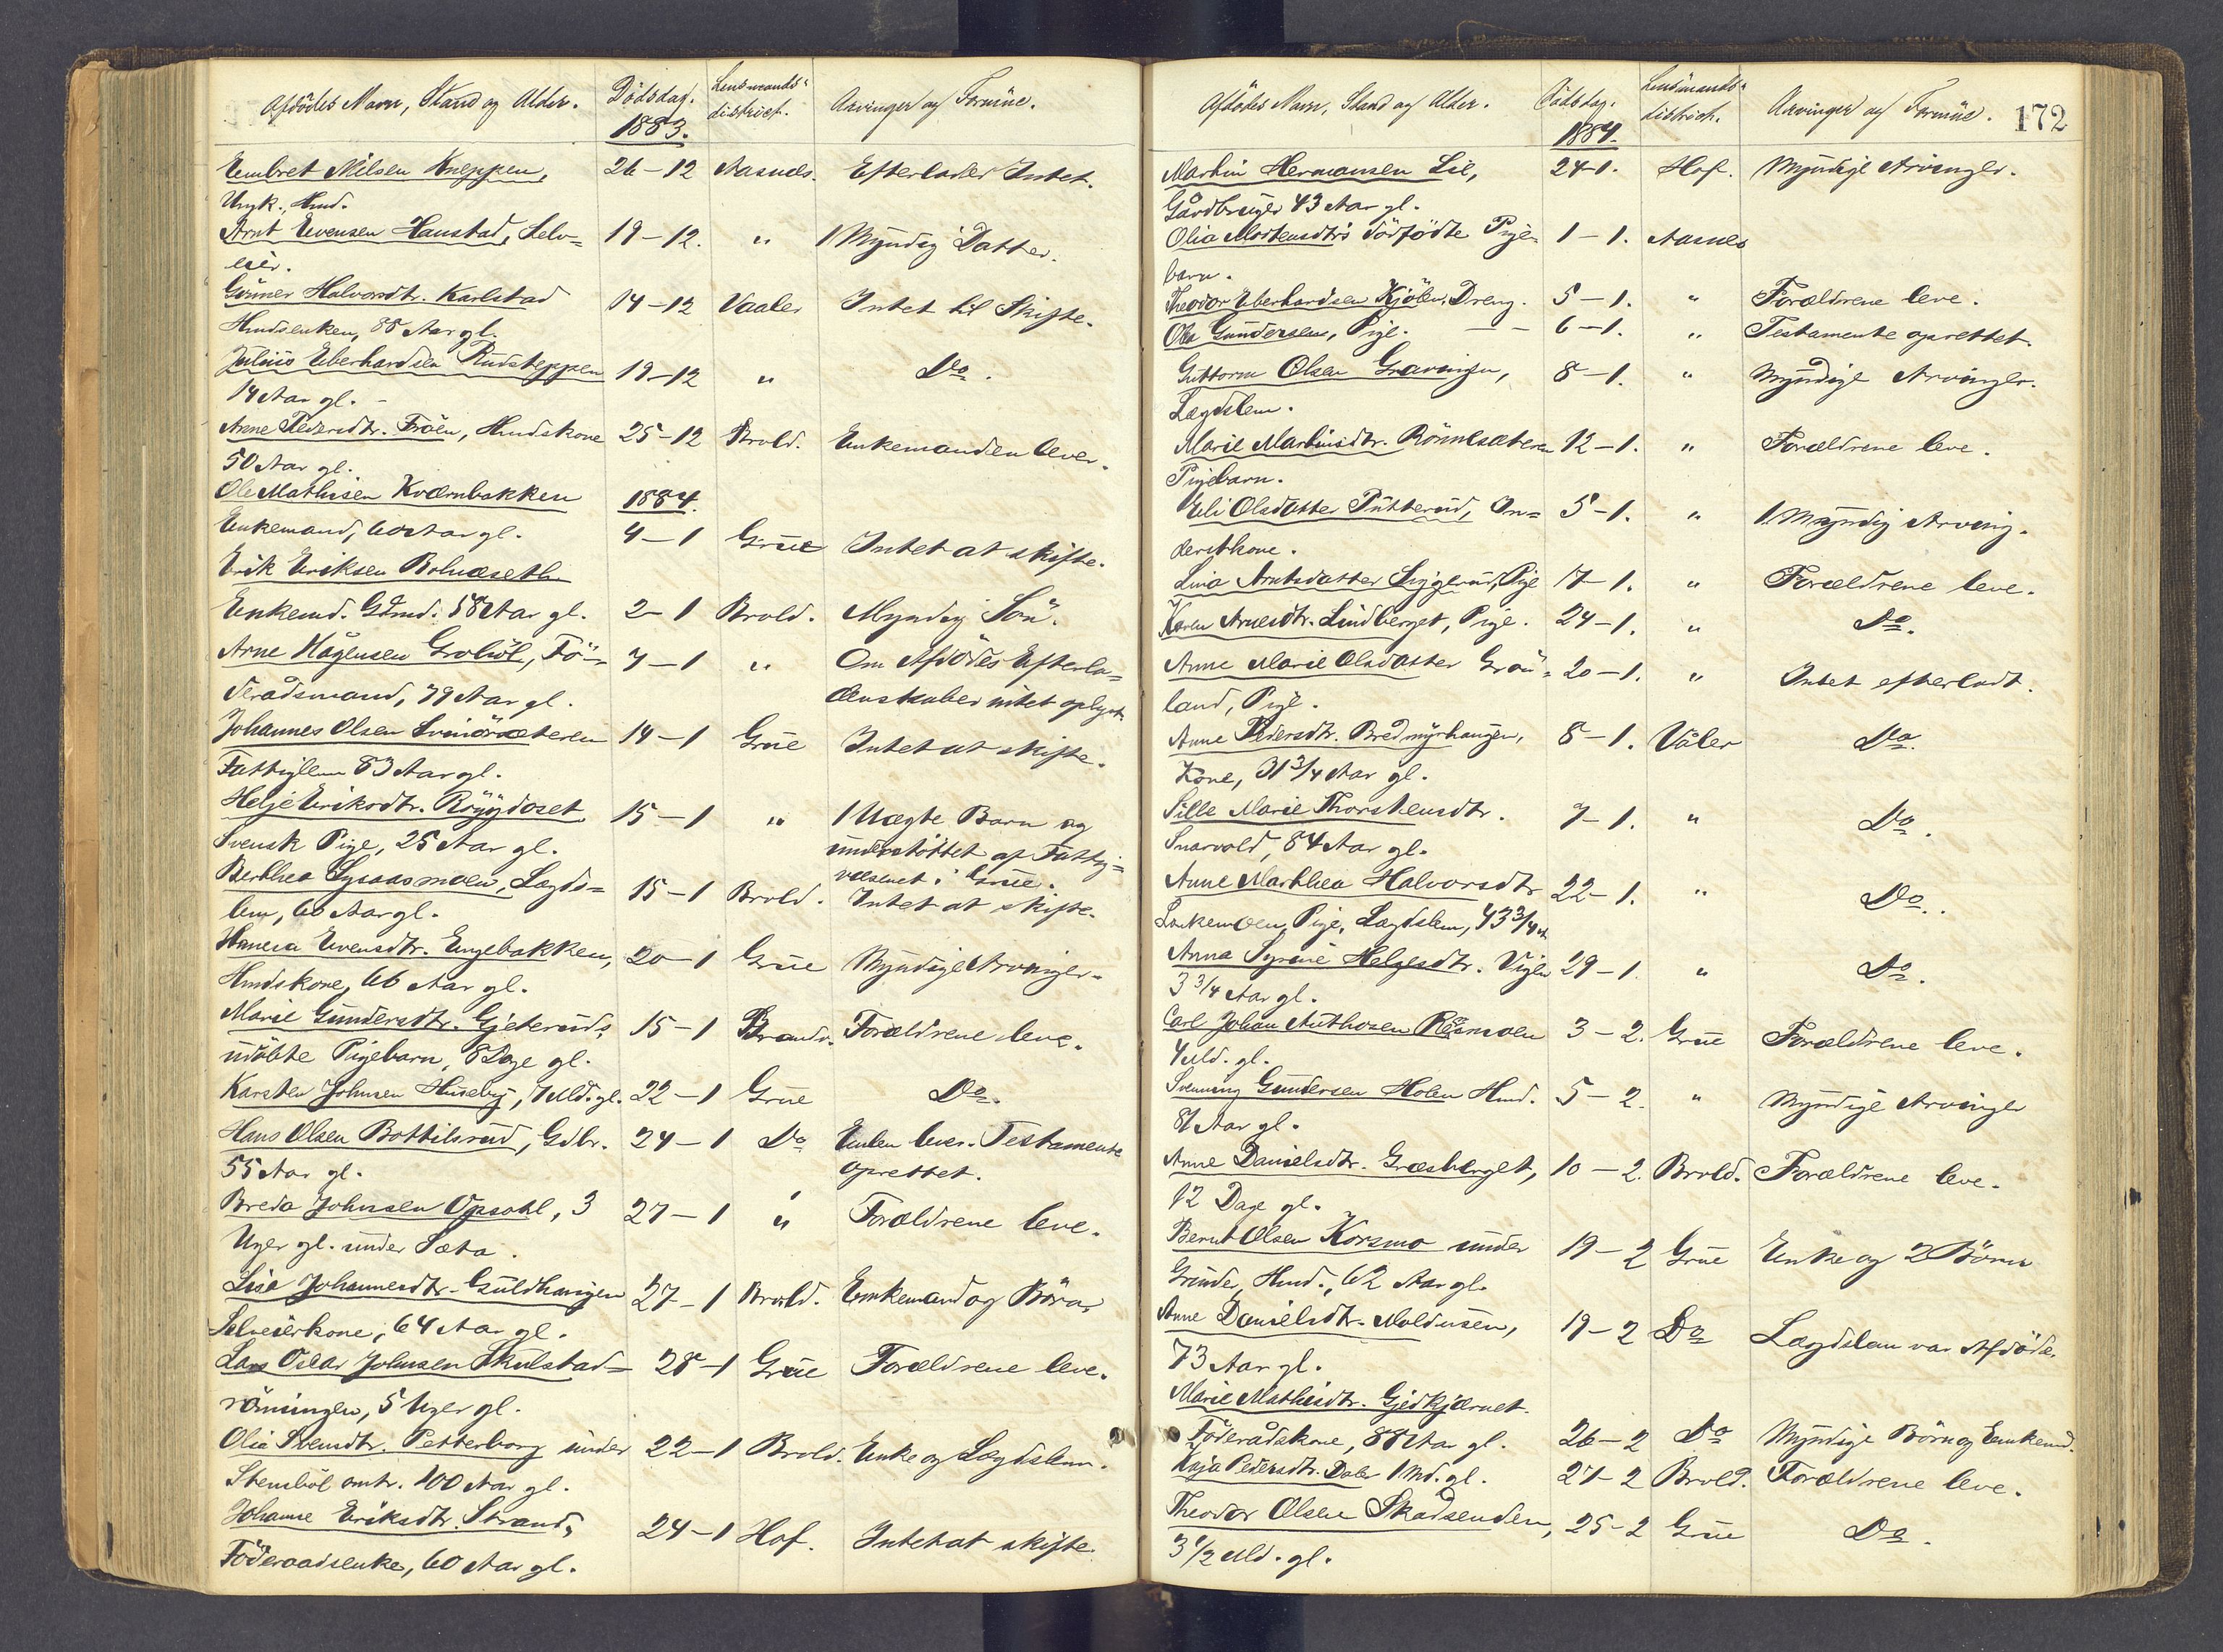 Afdødes Navn, Stand og Alder. Dødsdag. Lensmands- Arvinger og Formue.
1883. district.
Embret Nilsen Kneppen, 26-12 Aasnes. Efterlader Intet.
Ungk., Hmd.
Arnt Evensen Haustad, Selv= 19-12. " 1 Myndig Datter.
eier.
Gunner Halvorsdtr. Karlstad 14-12 Vaaler Intet til Skifte.
Hmdsenken, 88 Aar gl.
Julius Eberhardsen Rudsteppen 19-12 " Do.
14 Aar gl. -
Anne Pedersdtr. Fröen, Hmdskone 25-12 Brvld. Enkemanden lever.
50 Aar gl.
Ole Mathisen Kværnbakken 1884.
Enkemand, 60 Aar gl. 4-1 Grue Intet at skifte.
Erik Eriksen
Enkemd. Gdmd. 58 Aar gl. 2-1 Brvld. Myndig Søn.
Arne Hågensen, Fö- 7-1 " Om Afdödes Efterla=
deraadsmand, 79 Aar gl. denskaber intet oplyst.
Johannes Olsen 14-1 Grue Intet at skifte.
Fattiglem 83 Aar gl.
Helje Eriksdtr. 15-1 " 1 Uægte Barn og
Svensk Pige, 25 Aar gl. understöttet af Fattig=
væsenet i Grue.
Berthea Lysaasmoen, Lægds= 15-1 Brvld. Intet at skifte.
lem, 60 Aar gl.
Evensdtr. Engebakken, 20-1 Grue Myndige Arvinger.
Hmdskone, 66 Aar gl.
Marie Gundersdtr. Gjeteruds, 15-1 Brandv. Forældrene leve.
udöbte Pigebarn, 8 Dage gl.
Karsten Johnsen Huseby, 7 Md. gl. 22-1 Grue Do.
Hans Olsen Bottilsrud, Gdbr. 24-1 Do Enken lever. Testamente
55 Aar gl. oprettet.
Breda Johnsen Opsahl, 3 27-1 " Forældrene leve.
Uger gl. under Sæta.
Lisa Johannesdtr. Guldhaugen 27-1 Brvld. Enkemand og Börn
Selveierkone, 64 Aar gl.
Lars Oscar Johnsen Skulstad= 28-1 Grue Forældrene leve.
röiningen, 5 Uger gl.
Olia Svendtr. Petterborg under 22-1 Brvld. Enke og Lægdslem.
Stemböl omtr. 100 Aar gl.
Johanne Eriksdtr. Strand, 24-1 Hof. Intet at skifte.
Föderaadsenke, 60 Aar gl.
Afdödes Navn, Stand og Alder. Dödsdag. Lensmands- Arvinger og Formue. 172
1884. district.
Martin Hermansen Lie, 24-1. Hof. Myndige Arvinger.
Gårdbruger 43 Aar gl.
Olia Mortensdtr's dödfödte Pige= 1-1. Aasnes
barn.
Theodor Eberhardsen Kjölen, Dreng. 5-1. " Forældrene leve.
Olea Gundersen, Pige. - - 6-1. " Testamente oprettet.
Guttorm Olsen Gravingen, 8-1. " Myndige Arvinger.
Lægdslem.
Marie Martinsdtr. Rönnesæteren 12-1. " Forældrene leve.
Pigebarn.
Eli Olsdatter Putterud, In= 5-1. " 1 Myndig Arving.
derstkone.
Lina Arntsdatter Pige 17-1. " Forældrene leve.
Karen Arnesdtr. Lindberget, Pige. 24-1. " Do.
Anne Marie Olsdatter Grön= 20-1. " Intet efterladt.
land, Pige.
Anne Pedersdtr. Bredmyrhaugen, 8-1. Våler Do.
Kone, 31 3/4 Aar gl.
Sille Marie Thorstensdtr. 7-1. " Do.
Snarvold, 84 Aar gl.
Anne Marthea Halvorsdtr 22-1. " Do.
Pige, Lægdslem, 43 3/4 A.
Anna Syrine Helgesdtr. Vigen 29-1. " Do.
3 3/4 Aar gl.
Carl Johan Anthosen 3-2. Grue Forældrene leve.
4 Md. gl.
Svenning Gundersen Holen Hmd. 5-2. " Myndige Arvinger
81 Aar gl.
Anne Danielsdtr. Græsberget, 10-2. Brvld. Forældrene leve.
12 Dage gl.
Bernt Olsen Korsmo under 19-2 Grue Enke og 2 Börn
Grinder, Hmd., 62 Aar gl.
Anne Danielsdtr. Moldusen, 19-2 Do Lægdslem var Afdöde.
73 Aar gl.
Marie Mathisdtr. Gjedkjærnet.
Föderådskone, 88 Aar gl. 26-2 Do Myndige Börn og Enkemd.
Kaja Pedersdtr. Daler 1 Md. gl. 27-2 Brvld. Forældrene leve.
Theodor Olsen Skadsenden, 25-2 Grue Do.
3 1/2 Md. gl.